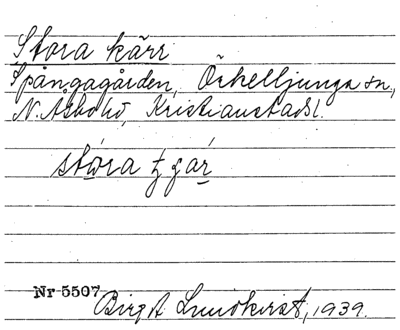 Stora kärr
Spångagården, Örkelljunga sn,
N. Åsbo hd, Kristianstads l.
stóra
Nr 5507
Birgit Lundkvist, 1939.